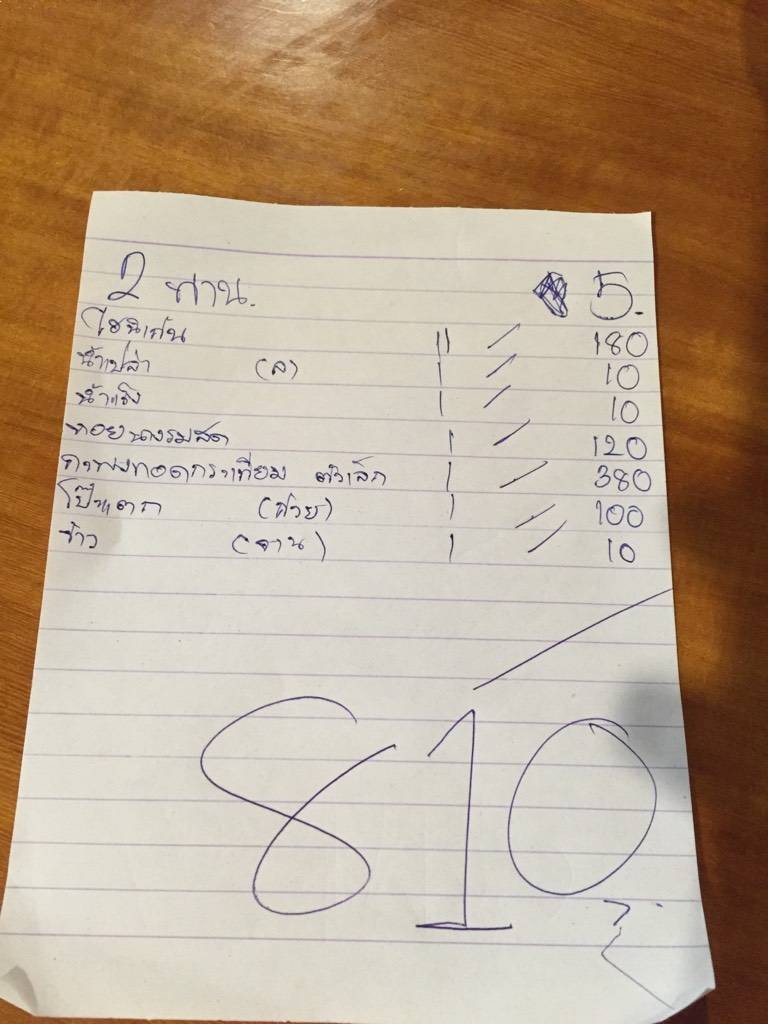 2 ท่าน. 5.
ไฮเนเก้น 11 / 180
น้ำเปล่า (ล) 1 / 10
น้ำแข็ง 1 / 10
หอยนางรมสด 1 / 120
กะพงทอดกระเทียม ตัวเล็ก 1 / 380
โป๊ะแตก (ถ้วย) 1 // 100
ข้าว (จาน) 1 // 10
810